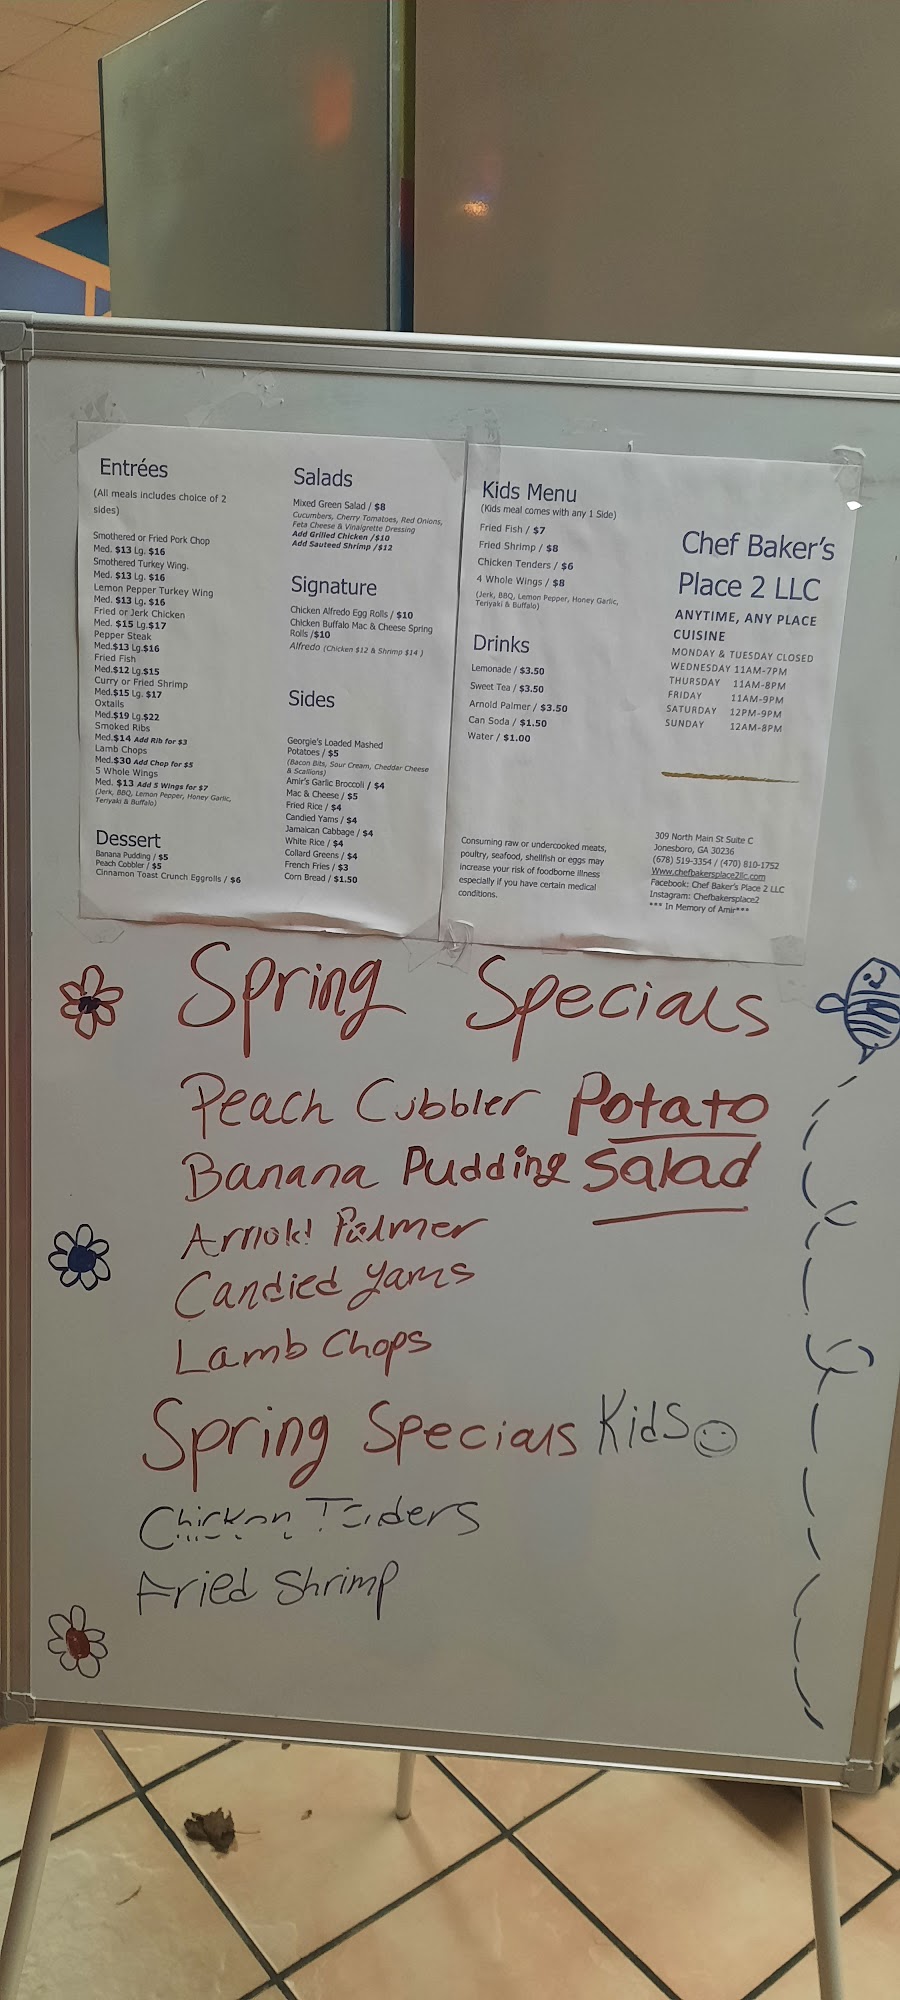 Entrées
(All meals includes choice of 2
sides)
Smothered or Fried Pork Chop
Med. $13 Lg. $16
Smothered Turkey Wing.
Med. $13 Lg. $16
Lemon Pepper Turkey Wing
Med. $13 Lg. $16
Fried or Jerk Chicken
Med. $15 Lg.$17
Pepper Steak
Med.$13 Lg.$16
Fried Fish
Med.$12 Lg.$15
Curry or Fried Shrimp
Med.$15 Lg. $17
Oxtails
Med.$19 Lg.$22
Smoked Ribs
Med.$14 Add Rib for $3
Lamb Chops
Med.$30 Add Chop for $5
5 Whole Wings
Med. $13 Add 5 Wings for $7
(Jerk, BBQ, Lemon Pepper, Honey Garlic,
Teriyaki & Buffalo)
Dessert
Banana Pudding / $5
Peach Cobbler / $5
Cinnamon Toast Crunch Eggrolls / $6
Salads
Mixed Green Salad / $8
Cucumbers, Cherry Tomatoes, Red Onions,
Feta Cheese & Vinaigrette Dressing
Add Grilled Chicken /$10
Add Sauteed Shrimp /$12
Signature
Chicken Alfredo Egg Rolls / $10
Chicken Buffalo Mac & Cheese Spring
Rolls /$10
Alfredo (Chicken $12 & Shrimp $14 )
Sides
Georgie's Loaded Mashed
Potatoes / $5
(Bacon Bits, Sour Cream, Cheddar Cheese
& Scallions)
Amir's Garlic Broccoli / $4
Mac & Cheese / $5
Fried Rice / $4
Candied Yams / $4
Jamaican Cabbage / $4
White Rice / $4
Collard Greens / $4
French Fries / $3
Corn Bread / $1.50
Kids Menu
(Kids meal comes with any 1 Side)
Fried Fish / $7
Fried Shrimp / $8
Chicken Tenders / $6
4 Whole Wings / $8
(Jerk, BBQ, Lemon Pepper, Honey Garlic,
Teriyaki & Buffalo)
Drinks
Lemonade / $3.50
Sweet Tea / $3.50
Arnold Palmer / $3.50
Can Soda / $1.50
Water / $1.00
Consuming raw or undercooked meats,
poultry, seafood, shellfish or eggs may
increase your risk of foodborne illness
especially if you have certain medical
conditions.
Chef Baker's
Place 2 LLC
ANYTIME, ANY PLACE
CUISINE
MONDAY & TUESDAY CLOSED
WEDNESDAY 11AM-7PM
THURSDAY 11AM-8PM
FRIDAY 11AM-9PM
SATURDAY 12PM-9PM
SUNDAY 12AM-8PM
309 North Main St Suite C
Jonesboro, GA 30236
(678) 519-3354 / (470) 810-1752
Www.chefbakersplace2llc.com
Facebook: Chef Baker's Place 2 LLC
Instagram: Chefbakersplace2
*** In Memory of Amir***
Spring Specials
Peach Cubbler Potato
Banana Pudding Salad
Arnold Palmer
Candied Yams
Lamb Chops
Spring Specials Kids
Chicken Tenders
Fried Shrimp